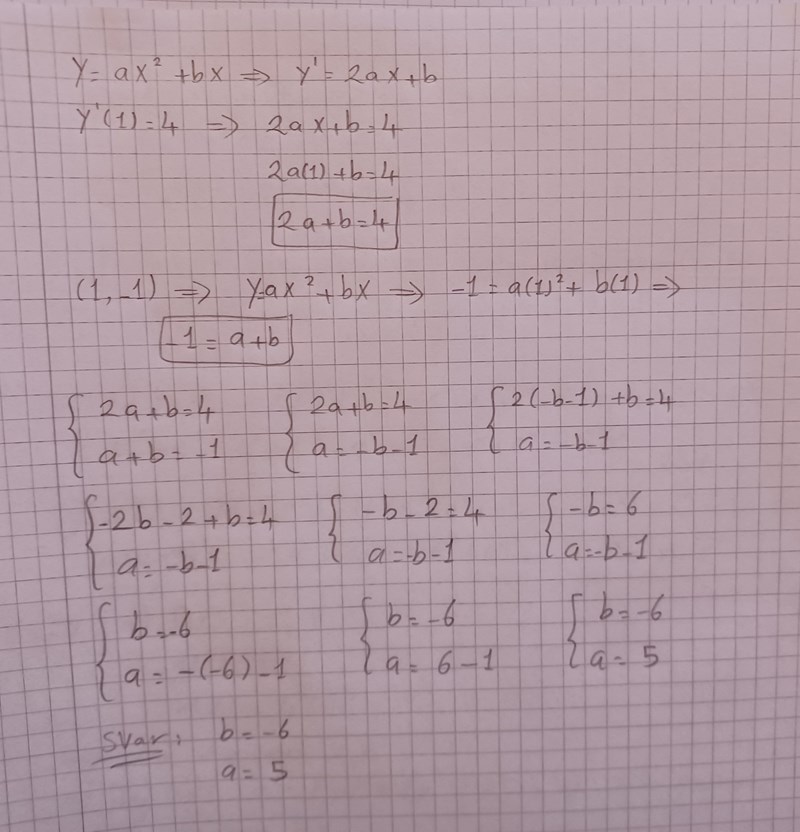 Y = ax² + bx ⇒ y' = 2ax + b
y'(1) = 4 ⇒ 2ax + b = 4
2a(1) + b = 4
2a + b = 4
(1, -1) ⇒ y=ax² + bx ⇒ -1 = a(1)² + b(1) ⇒
-1 = a + b
{ 2a + b = 4 { 2a + b = 4 { 2(-b-1) + b = 4
a + b = -1 a = -b - 1 a = -b-1
{ -2b - 2 + b = 4 { -b - 2 = 4 { -b = 6
a = -b-1 a = -b-1 a = -b-1
{ b = -6 { b = -6 { b = -6
a = -(-6) - 1 a = 6 - 1 a = 5
Svar: b = -6
a = 5